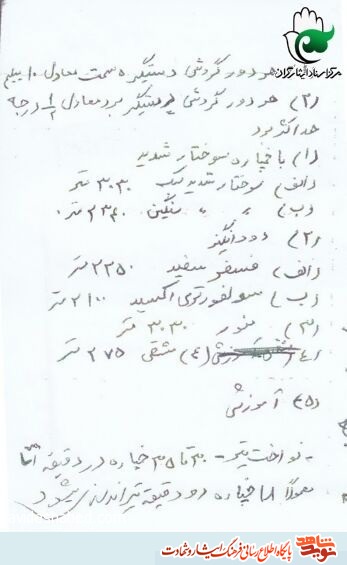 مرکز اسناد ایثارگران
هر دور گردشی دستگیره سمت معادل ۱۰ میلیم
(۲) هر دور گردشی دستگیر برد معادل ۱/۲ درجه
حداکثر برد
(۱) با خپاره سوختار شدید
(الف) سوختار شدید سبک ۳۰۳۰ متر
(ب) " " سنگین ۲۳۲۰ متر
(۲) دودانگیز
(الف) فسفر سفید ۲۲۵۰ متر
(ب) سولفورتری اکسید ۲۱۰۰ متر
(۳) منور ۳۰۳۰ متر
(۴) مشقی ۲۷۵ متر
(۵) آموزشی
- نواخت تیر - ۳۰ تا ۳۵ خپاره در دقیقه
معمولاً ۱۸ خپاره در دقیقه تیراندازی میشود
نوید شاهد
پایگاه اطلاع رسانی فرهنگ ایثار و شهادت